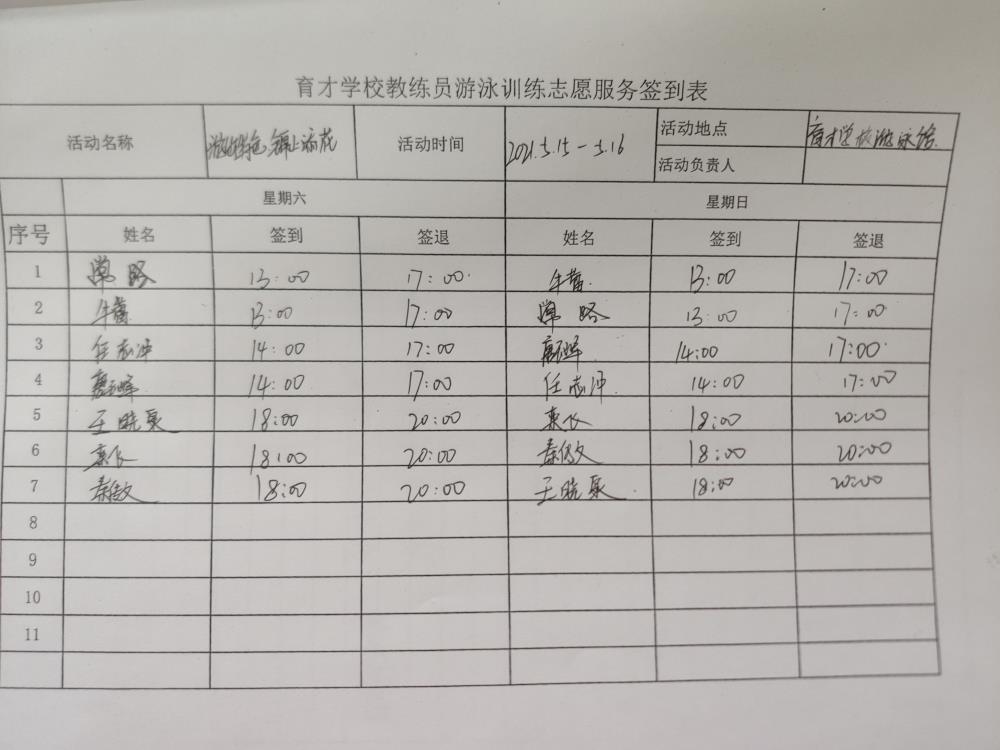 育才学校教练员游泳训练志愿服务签到表
活动名称 锦上添花 活动时间 2021.5.15-5.16 活动地点 育才学校游泳馆
活动负责人
星期六 星期日
序号 姓名 签到 签退 姓名 签到 签退
1 常路 13:00 17:00 牛蕾 13:00 17:00
2 牛蕾 13:00 17:00 常路 13:00 17:00
3 任志冲 14:00 17:00 14:00 17:00
4 14:00 17:00 任志冲 14:00 17:00
5 王晓泉 18:00 20:00 18:00 20:00
6 18:00 20:00 秦俊文 18:00 20:00
7 秦俊文 18:00 20:00 王晓泉 18:00 20:00
8
9
10
11